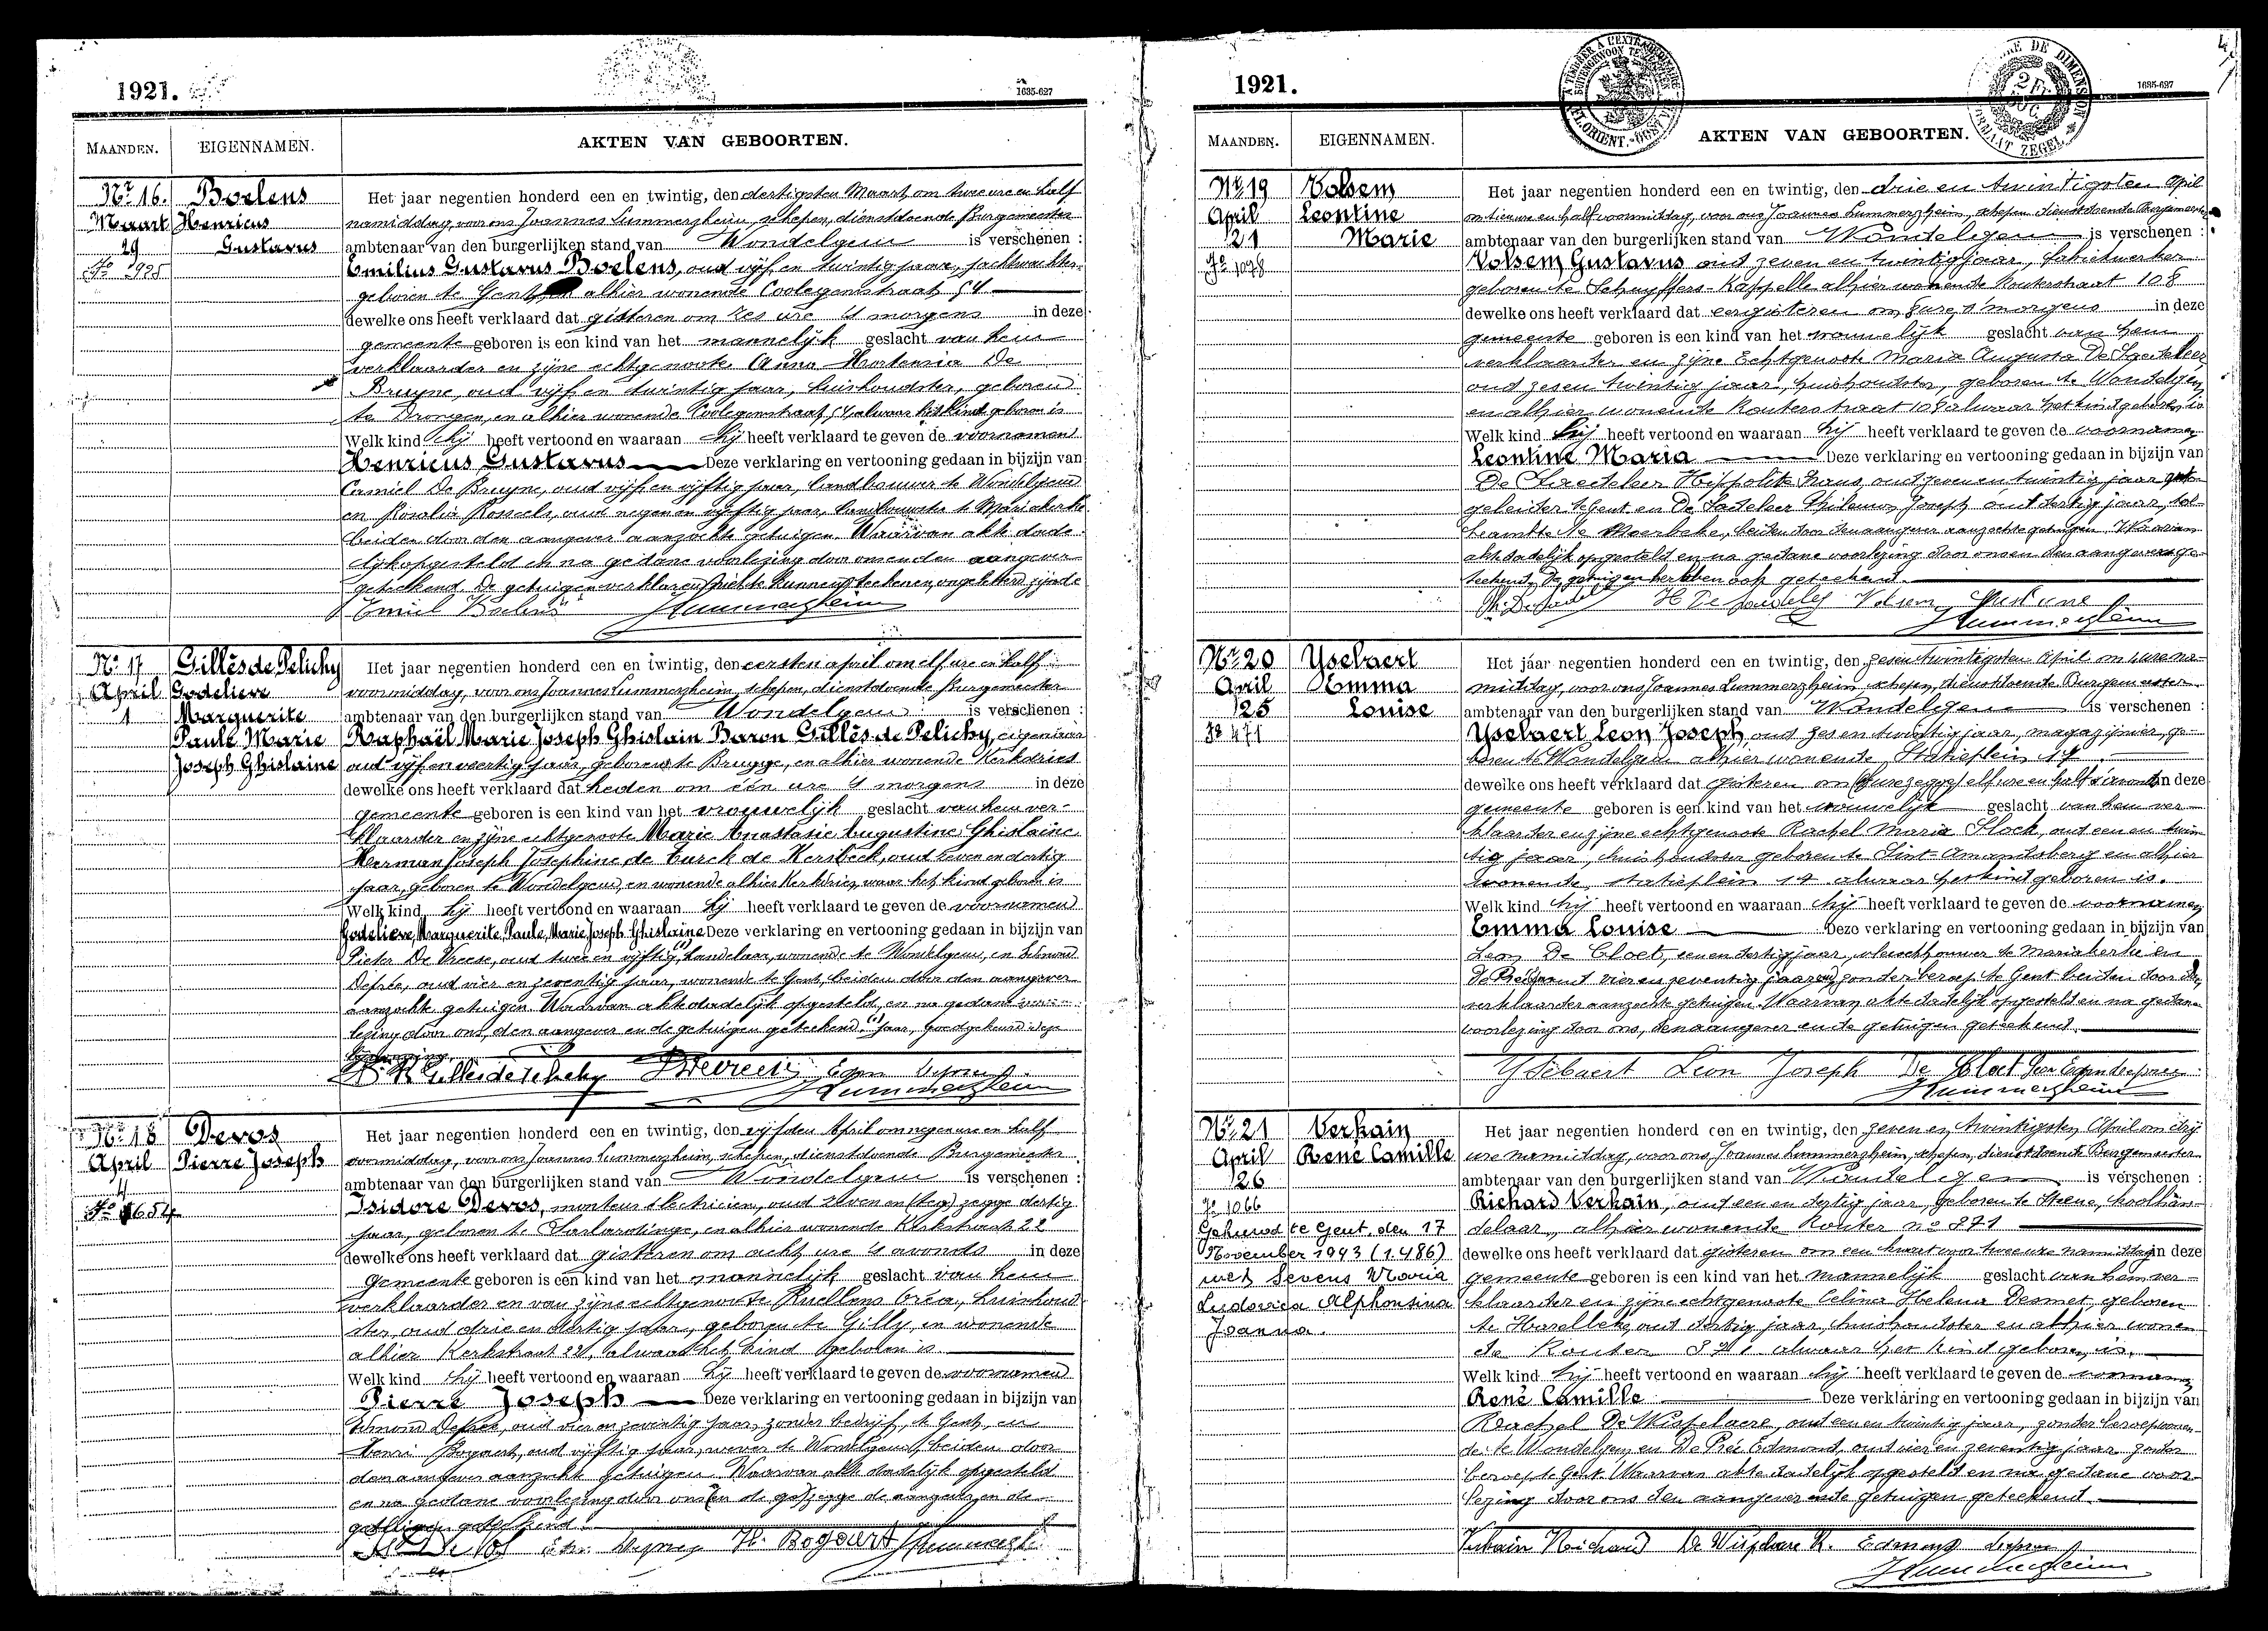 1921.
1635-627
MAANDEN. EIGENNAMEN. AKTEN VAN GEBOORTEN.
Nr 16. Boelens
Maart Henricus
29 Gustavus
Het jaar negentien honderd een en twintig, den dertigsten Maart om twee ure en half
namiddag, voor ons Joannes Lummerzheim, schepen, dienstdoende Burgemeester
ambtenaar van den burgerlijken stand van Wondelgem is verschenen :
Emilius Gustavus Boelens, oud vijf en twintig jaar,
geboren te Gent, alhier wonende Coolegemstraat 54
dewelke ons heeft verklaard dat gisteren om zes ure 's morgens in deze
gemeente geboren is een kind van het mannelijk geslacht van hem
verklaarder en zijne echtgenoote Anna Hortensia De
Bruyne, oud vijf en twintig jaar, huishoudster, geboren
te Drongen, en alhier wonende Coolegemstraat, 54 alwaar het kind geboren is
Welk kind hij heeft vertoond en waaraan hij heeft verklaard te geven de voornamen
Henricus Gustavus Deze verklaring en vertooning gedaan in bijzijn van
Camiel De Bruyne, oud vijf en vijftig jaar, landbouwer te Wondelgem
en Rosalia Roscels, oud negen en vijftig jaar, landbouwster te Mariakerke
beiden door den aangever aanzochte getuigen. Waarvan akte dade-
lijk opgesteld en na gedane voorlezing door ons en den aangever
geteekend. De getuigen verklaren niet te kunnen teekenen, ongeletterd zijnde
Emiel Boelens Lummerzheim
Nr 17 Gillès de Pelichy
April Godelieve
1 Marguerite
Paule Marie
Joseph Ghislaine
Het jaar negentien honderd een en twintig, den eersten april om elf ure en half
voormiddag, voor ons Joannes Lummerzheim, schepen, dienstdoende Burgemeester
ambtenaar van den burgerlijken stand van Wondelgem is verschenen :
Raphaël Marie Joseph Ghislain Baron Gillès de Pelichy, eigenaar
oud vijf en veertig jaar, geboren te Brugge, en alhier wonende Kerkdries
dewelke ons heeft verklaard dat heden om één ure 's morgens in deze
gemeente geboren is een kind van het vrouwelijk geslacht van hem ver-
klaarder en zijne echtgenoote Marie Anastasie Augustine Ghislaine
Herman Joseph Josephine de Curck de Kersbeck, oud zeven en dertig
jaar, geboren te Wondelgem, en wonende alhier Kerkdries, waar het kind geboren is
Welk kind hij heeft vertoond en waaraan hij heeft verklaard te geven de voornamen
Godelieve, Marguerite, Paule, Marie, Joseph, Ghislaine Deze verklaring en vertooning gedaan in bijzijn van
Pieter De Vreese, oud twee en vijftig, handelaar, wonende te Wondelgem, en Edmond
Deprée, oud vier en zeventig jaar, wonende te Gent, beiden door den aangever
aanzochte getuigen. Waarvan akte dadelijk opgesteld, en na gedane voor-
lezing door ons, den aangever en de getuigen geteekend. (1) jaar, goedgekeurd deze
bijvoeging.
Lummerzheim
Nr 18 Devos
April Pierre Joseph
4
Het jaar negentien honderd een en twintig, den vijfden April om negen ure en half
voormiddag, voor ons Joannes Lummerzheim, schepen, dienstdoende Burgemeester
ambtenaar van den burgerlijken stand van Wondelgem is verschenen :
Isidore Devos, monteur electricien, oud zeven en (tseg) zegge dertig
jaar, geboren te Sarlardinge, en alhier wonende Kerkstraat 22
dewelke ons heeft verklaard dat gisteren om acht ure 's avonds in deze
gemeente geboren is een kind van het mannelijk geslacht van hem
verklaarder en van zijne echtgenoote Ruellens Oréa, huishoud-
ster, oud drie en dertig jaar, geboren te Gilly, en wonende
alhier Kerkstraat 22, alwaar het kind geboren is
Welk kind hij heeft vertoond en waaraan hij heeft verklaard te geven de voornamen
Pierre Joseph Deze verklaring en vertooning gedaan in bijzijn van
Edmond Deprée, oud vier en zeventig jaar, zonder bedrijf, te Gent, en
Henri Bogaert, oud vijftig jaar, wever te Wondelgem, beiden door
den aangever aanzochte getuigen. Waarvan akte dadelijk opgesteld
en na gedane voorlezing door ons (en de ge) zegge de aangever en de
getuigen geteekend.
H. Bogaert Lummerzh
1921.
1635-627
MAANDEN. EIGENNAMEN. AKTEN VAN GEBOORTEN.
Nr 19 Volsem
April Leontine
21 Marie
No 1078
Het jaar negentien honderd een en twintig, den drie en twintigsten April
om tien ure en half voormiddag, voor ons Joannes Lummerzheim, schepen dienstdoende Burgemeester
ambtenaar van den burgerlijken stand van Wondelgem is verschenen :
Volsem Gustavus oud zeven en twintig jaar, fabriekwerker
geboren te Schuyffers-Kappelle alhier wonende Routerstraat 108
dewelke ons heeft verklaard dat eergisteren om 8 ure 's morgens in deze
gemeente geboren is een kind van het vrouwelijk geslacht van hem
verklaarder en zijne Echtgenoote Maria Augusta De Sadeleer
oud zes en twintig jaar, huishoudster, geboren te Wondelgem
en alhier wonende Routerstraat 108 alwaar het kind geboren is
Welk kind hij heeft vertoond en waaraan hij heeft verklaard te geven de voornamen
Leontine Maria Deze verklaring en vertooning gedaan in bijzijn van
De Sadeleer Hippolite Frans, oud zeven en twintig jaar
geleider te Gent en De Sadeleer Philemon Joseph oud dertig jaar, tol-
beambte te Moerbeke, beiden door den aangever aanzochte getuigen. Waarvan
akte dadelijk opgesteld en na gedane voorlezing door ons en den aangever ge-
teekend. De getuigen hebben ook geteekend.
Lummerzheim
Nr 20 Yselaert
April Emma
25 Louise
No 471
Het jaar negentien honderd een en twintig, den zes en twintigsten April om 4 ure na-
middag, voor ons Joannes Lummerzheim, schepen, dienstdoende Burgemeester
ambtenaar van den burgerlijken stand van Wondelgem is verschenen :
Yselaert Leon Joseph, oud zes en twintig jaar, magazijnier, ge-
boren te Wondelgem alhier wonende Statieplein 14
dewelke ons heeft verklaard dat gisteren om (ure zegge) elf ure en half 's avonds in deze
gemeente geboren is een kind van het vrouwelijk geslacht van hem ver-
klaarder en zijne echtgenoote Rachel Maria Slock, oud een en twin-
tig jaar, huishoudster geboren te Sint-Amandsberg en alhier
wonende, statieplein 14 alwaar het kind geboren is.
Welk kind hij heeft vertoond en waaraan hij heeft verklaard te geven de voornamen
Emma Louise Deze verklaring en vertooning gedaan in bijzijn van
Leon De Cloet, een en dertig jaar, vleeschhouwer te Mariakerke en
De Preé oud vier en zeventig jaar zonder beroep te Gent beiden door den
verklaarder aanzochte getuigen. Waarvan akte dadelijk opgesteld en na gedane
voorlezing door ons, den aangever en de getuigen geteekend.
Ysebaert Leon Joseph De Cloet Leon
Lummerzheim
Nr 21 Verhain
April René Camille
26
No 1066
Gehuwd te Gent, den 17
November 1943 (1.486)
met Sevens Maria
Ludovica Alphonsina
Joanna.
Het jaar negentien honderd een en twintig, den zeven en twintigsten April om drij
ure namiddag, voor ons, Joannes Lummerzheim, schepen, dienstdoende Burgemeester
ambtenaar van den burgerlijken stand van Wondelgem is verschenen :
Richard Verhain, oud een en dertig jaar, geboren te Steene, koolhan-
delaar, alhier wonende Router no 271
dewelke ons heeft verklaard dat gisteren om een kwart voor twee ure namiddag in deze
gemeente geboren is een kind van het mannelijk geslacht van hem ver-
klaarder en zijne echtgenoote Celina Helena Desmet, geboren
te Harelbeke, oud dertig jaar, huishoudster en alhier wonen-
de Router 271 alwaar het kind geboren is.
Welk kind hij heeft vertoond en waaraan hij heeft verklaard te geven de voornamen
René Camille Deze verklaring en vertooning gedaan in bijzijn van
Rachel De Wispelaere, oud een en twintig jaar, zonder beroep wonen-
de te Wondelgem, en De Preé Edmond, oud vier en zeventig jaar zonder
beroep te Gent. Waarvan akte dadelijk opgesteld en na gedane voor-
lezing door ons den aangever en de getuigen geteekend.
Verhain Richard De Wispelaere R. Edmond
Lummerzheim